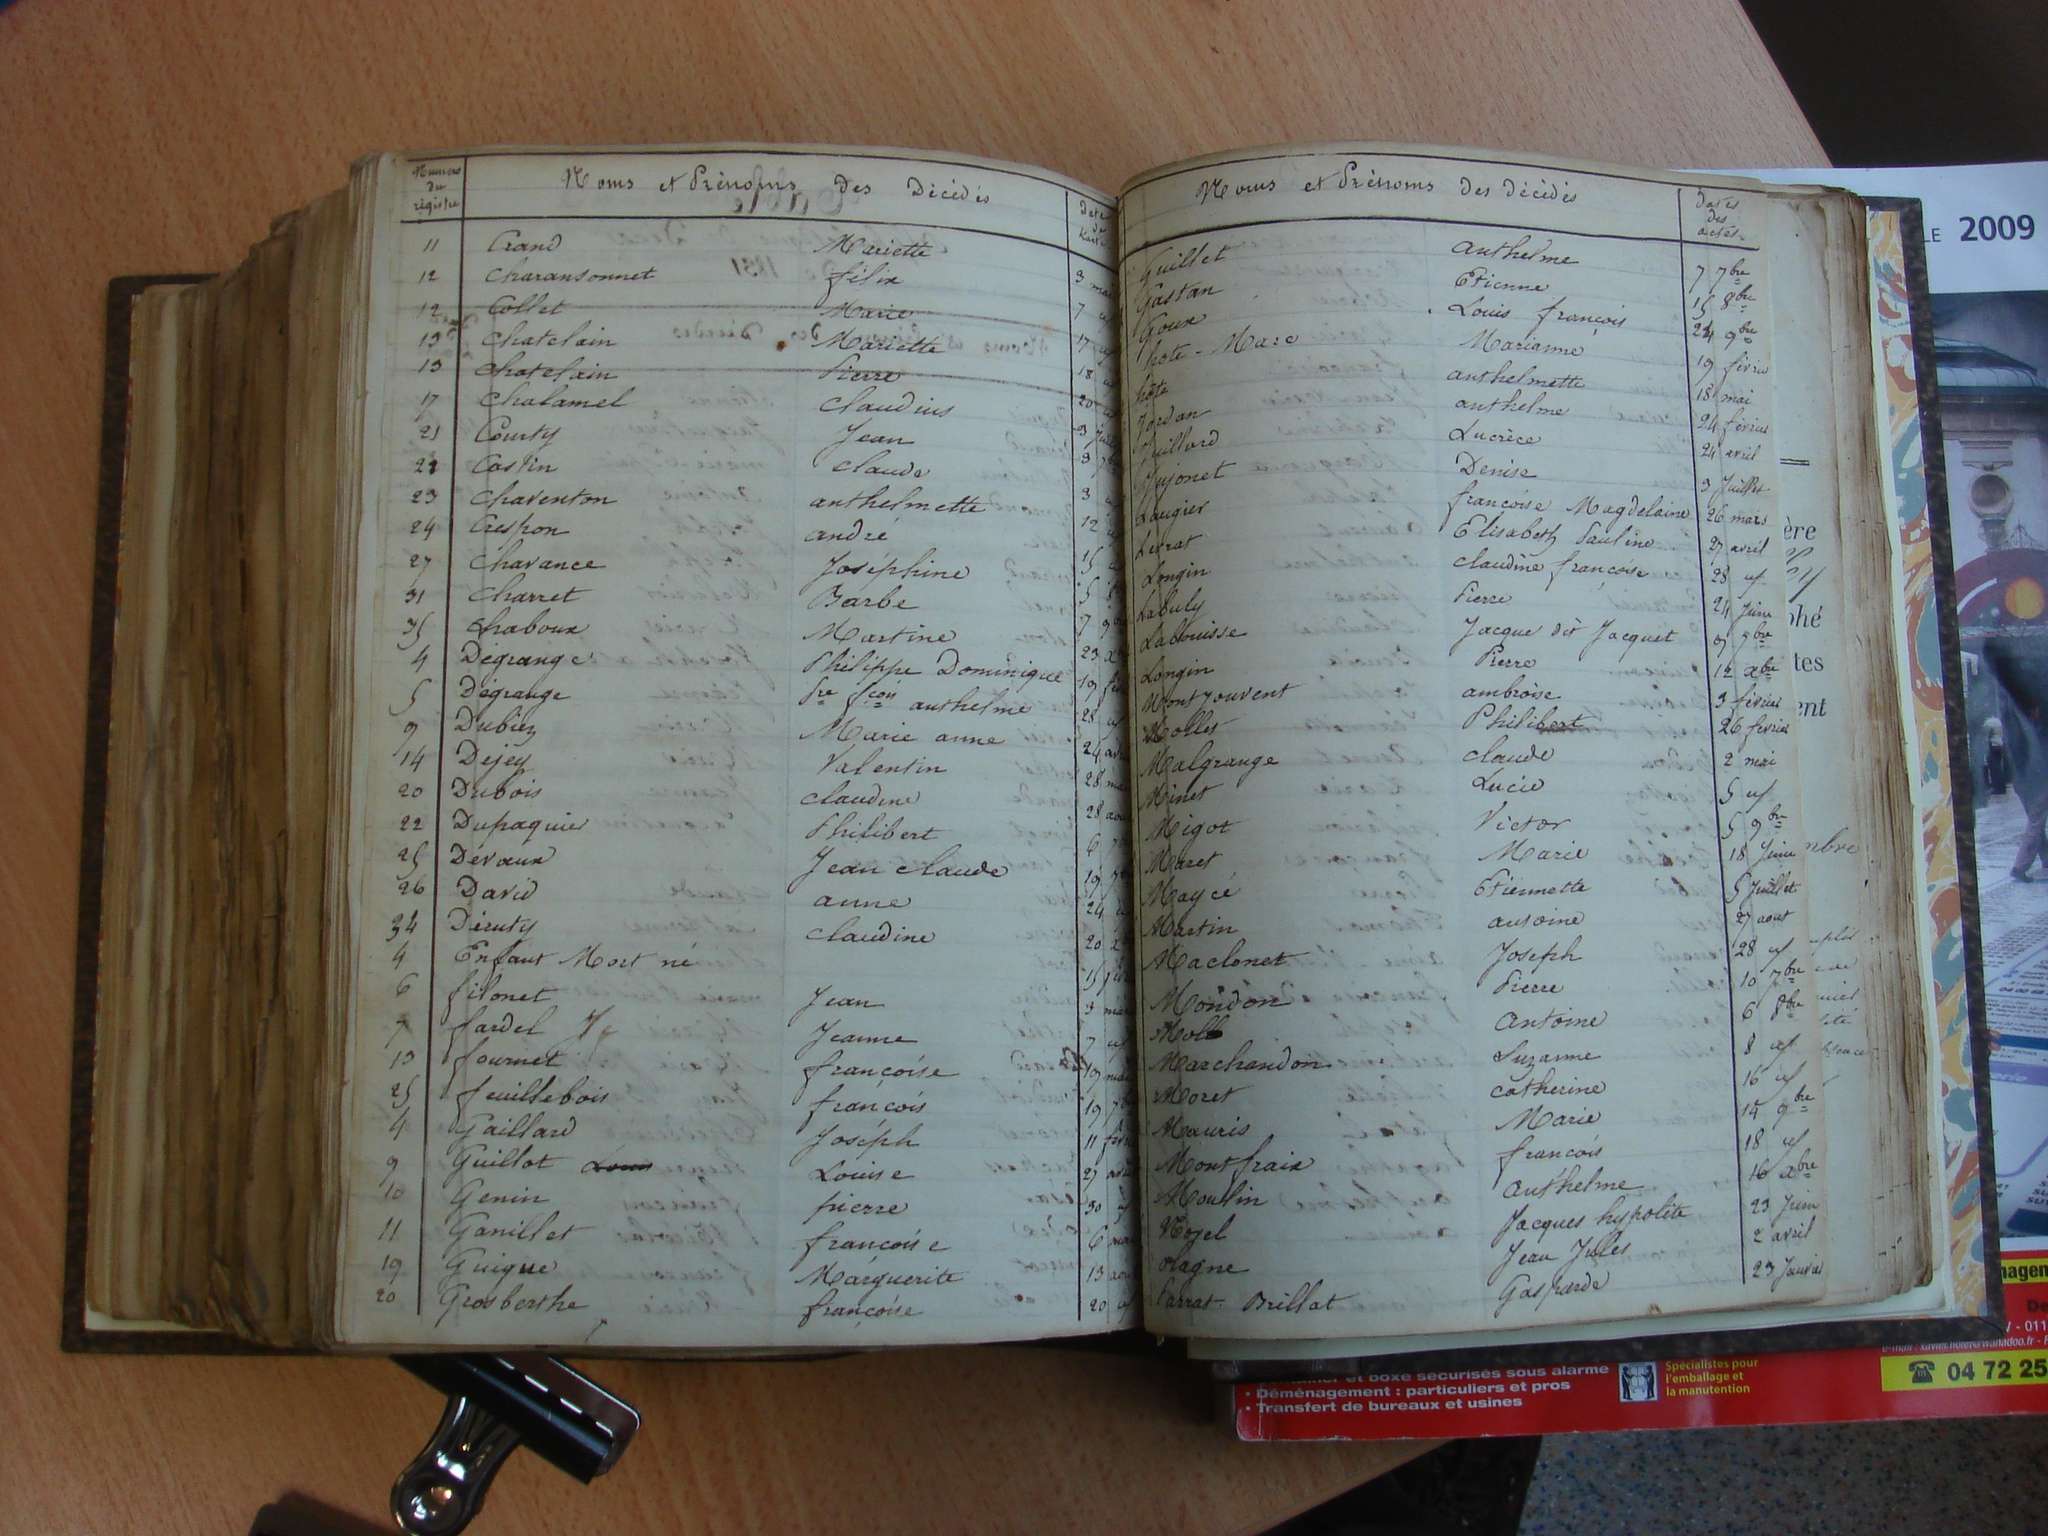 Numéros
du
régistre
Noms et Prénoms des Décédés
11 Crand Mariette
12 Charansonnet félix 3
12 Collet Marie 7
13 Chatelain Mariette 17
13 Chatelain Pierre 18
17 Chalamel Claudius 20
21 Courty Jean
22 Costin Claude 3
23 Chaventon anthelmette 3
24 Crespon andré 12
27 Chavance Joséphine 15
31 Charret Barbe 5
35 Chaboux Martine 7
4 Dégrange Philippe Dominique 23
5 Dégrange Pre fcois anthelme 19
9 Dubiez Marie anne 28
14 Dejey Valentin 24
20 Dubois claudine 28
22 Dupaquier Philibert 28
25 Dévaux Jean claude 6
26 David anne 19
34 Déruty claudine 24
4 Enfant Mort né 20
6 filonet Jean 15
7 fardel Jeanne 3
13 fournet françoise 7
25 feuillebois françois 19
4 Gaillard Joséph 19
9 Guillot Louise 11
10 Genin pierre 27
11 Ganillet françoise 30
19 Guigue Marguerite 6
20 Grosberthe françoise 13
20
Noms et Prénoms des Décédés
Dates
des
actes
Guillet anthelme 7 7bre
Gastan Etienne 15 8bre
Goux Louis françois 24 9bre
hote-Marc Marianne 19 févrie
hôte anthelmette 18 mai
Jordan anthelme 24 février
Juillard Lucrèce 24 avril
Jujonet Denise 3 Juillet
Laugier françoise Magdelaine 26 mars
Levrat Elisabeth Pauline 27 avril
Longin claudine françoise 28 "
Labuly Pierre 24 Juin
Labouisse Jacque dit Jacquet 9 7bre
Longin Pierre 12 xbre
Montjouvent ambroise 3 février
Mollet Philibert 26 fevrier
Malgrange claude 2 mai
Minet Lucie 5 "
Migot Victor 5 9bre
Maret Marie 18 Juin
Maycé Etiennette 5 Juillet
Martin antoine 27 aout
Maclonet Joseph 28 "
Moudon Pierre 10 7bre
Moll Antoine 6 8bre
Marchandon Suzanne 8 "
Moret catherine 16 "
Mauris Marie 14 9bre
Montfraix françois 18 "
Moulin Anthelme 16 xbre
Nojel Jacques hypolite 23 Juin
olagne Jean Jules 2 avril
Parrat-Brillat Gasparde 23 Janvie
2009
ère
phé
tes
ent
mbre
box sécurisés sous alarme
• Déménagement : particuliers et pros
• Transfert de bureaux et usines
Spécialistes pour
l'emballage et
la manutention
☎ 04 72 25